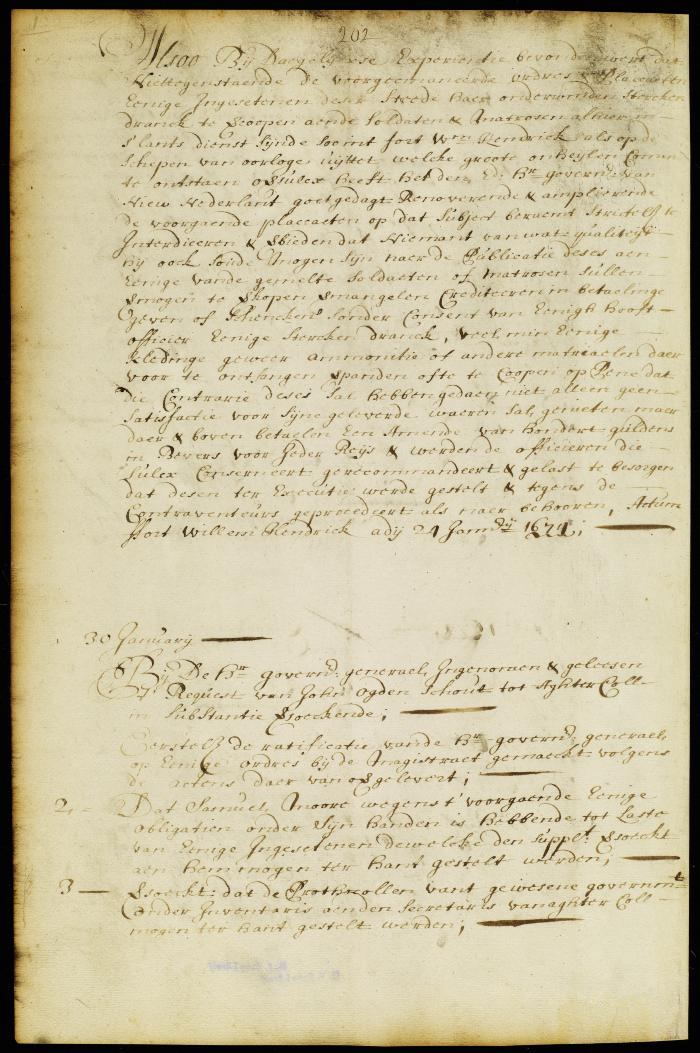 202
Alsoo Bij Daegelyxse Experientie bevonden wert dat
Niettegenstaende de voorgeemaneerde ordres Placcaeten
Eenige Ingesetenen deser Steede haer onderwinden Stercken
dranck te vercopen aende Soldaten & Matrosen alhier in
S'lants dienst Synde soo int fort Wm Hendrick als op de
Schepen van oorloge uyt welcke groote onheylen Comen
te ontstaen Soo heeft het den Ed: Hr governr van
Niew Nederlant goetgedagt Renoverende & amplierende
de voorgaende placcaeten op dat Subject beraemt Strictelj te
Interdiceren & verbieden dat Niemant van wat qualiteyt
hy oock Soude mogen Syn naer de Publicatie deses aen
Eenige vande gemelte Soldaeten of matrosen Sullen
vermogen te verkopen vermangelen Crediteeren in betaelinge
geven of Schencken Sonder Consent van Eenigh Hooft
officier Eenige Stercken dranck, veel min Eenige
kledinge geweer ammonitie of andere matriaelen daer
voor te ontfangen verpanden ofte te Coopen op Pene dat
die Contrarie deses Sal hebben gedaen niet alleen geen
Satisfactie voor Syne geleverde waeren Sal genieten maer
daer & boven betaelen Een Amende van hondert guldens
in Bevers voor Jeder Reys & werdende officieren die
Sulcx Conserneert gerecommandeert & gelast te besorgen
dat desen ter Executie werde gestelt & tegens de
Contraventeurs geprocedeert als naer behooren, Actum
ffort Willem Hendrick adij 24 Janry 1674;
30 January
By De Hr governr generael, Ingenomen & geleesen
Request van John Ogden Schout tot Aghter Coll
in Substantie versoeckende;
Eerstelj de ratificatie vande Hr governr generael,
op Eenige ordres bij de Magistraet gemaeckt volgens
de actens daer van overgelevert;
2, Dat Samuel Moore wegens t' voorgaende Eenige
obligatien onder Syn handen is hebbende tot Laste
van Eenige Ingesetenen dewelcke den Supplt versoeckt
aen hem mogen ter hant gestelt werden;
3 Versoeckt: dat de Prothocollen vant gewesene governmt
onder Inventaris aenden Secretaris van aghter Coll
mogen ter hant gestelt werden;